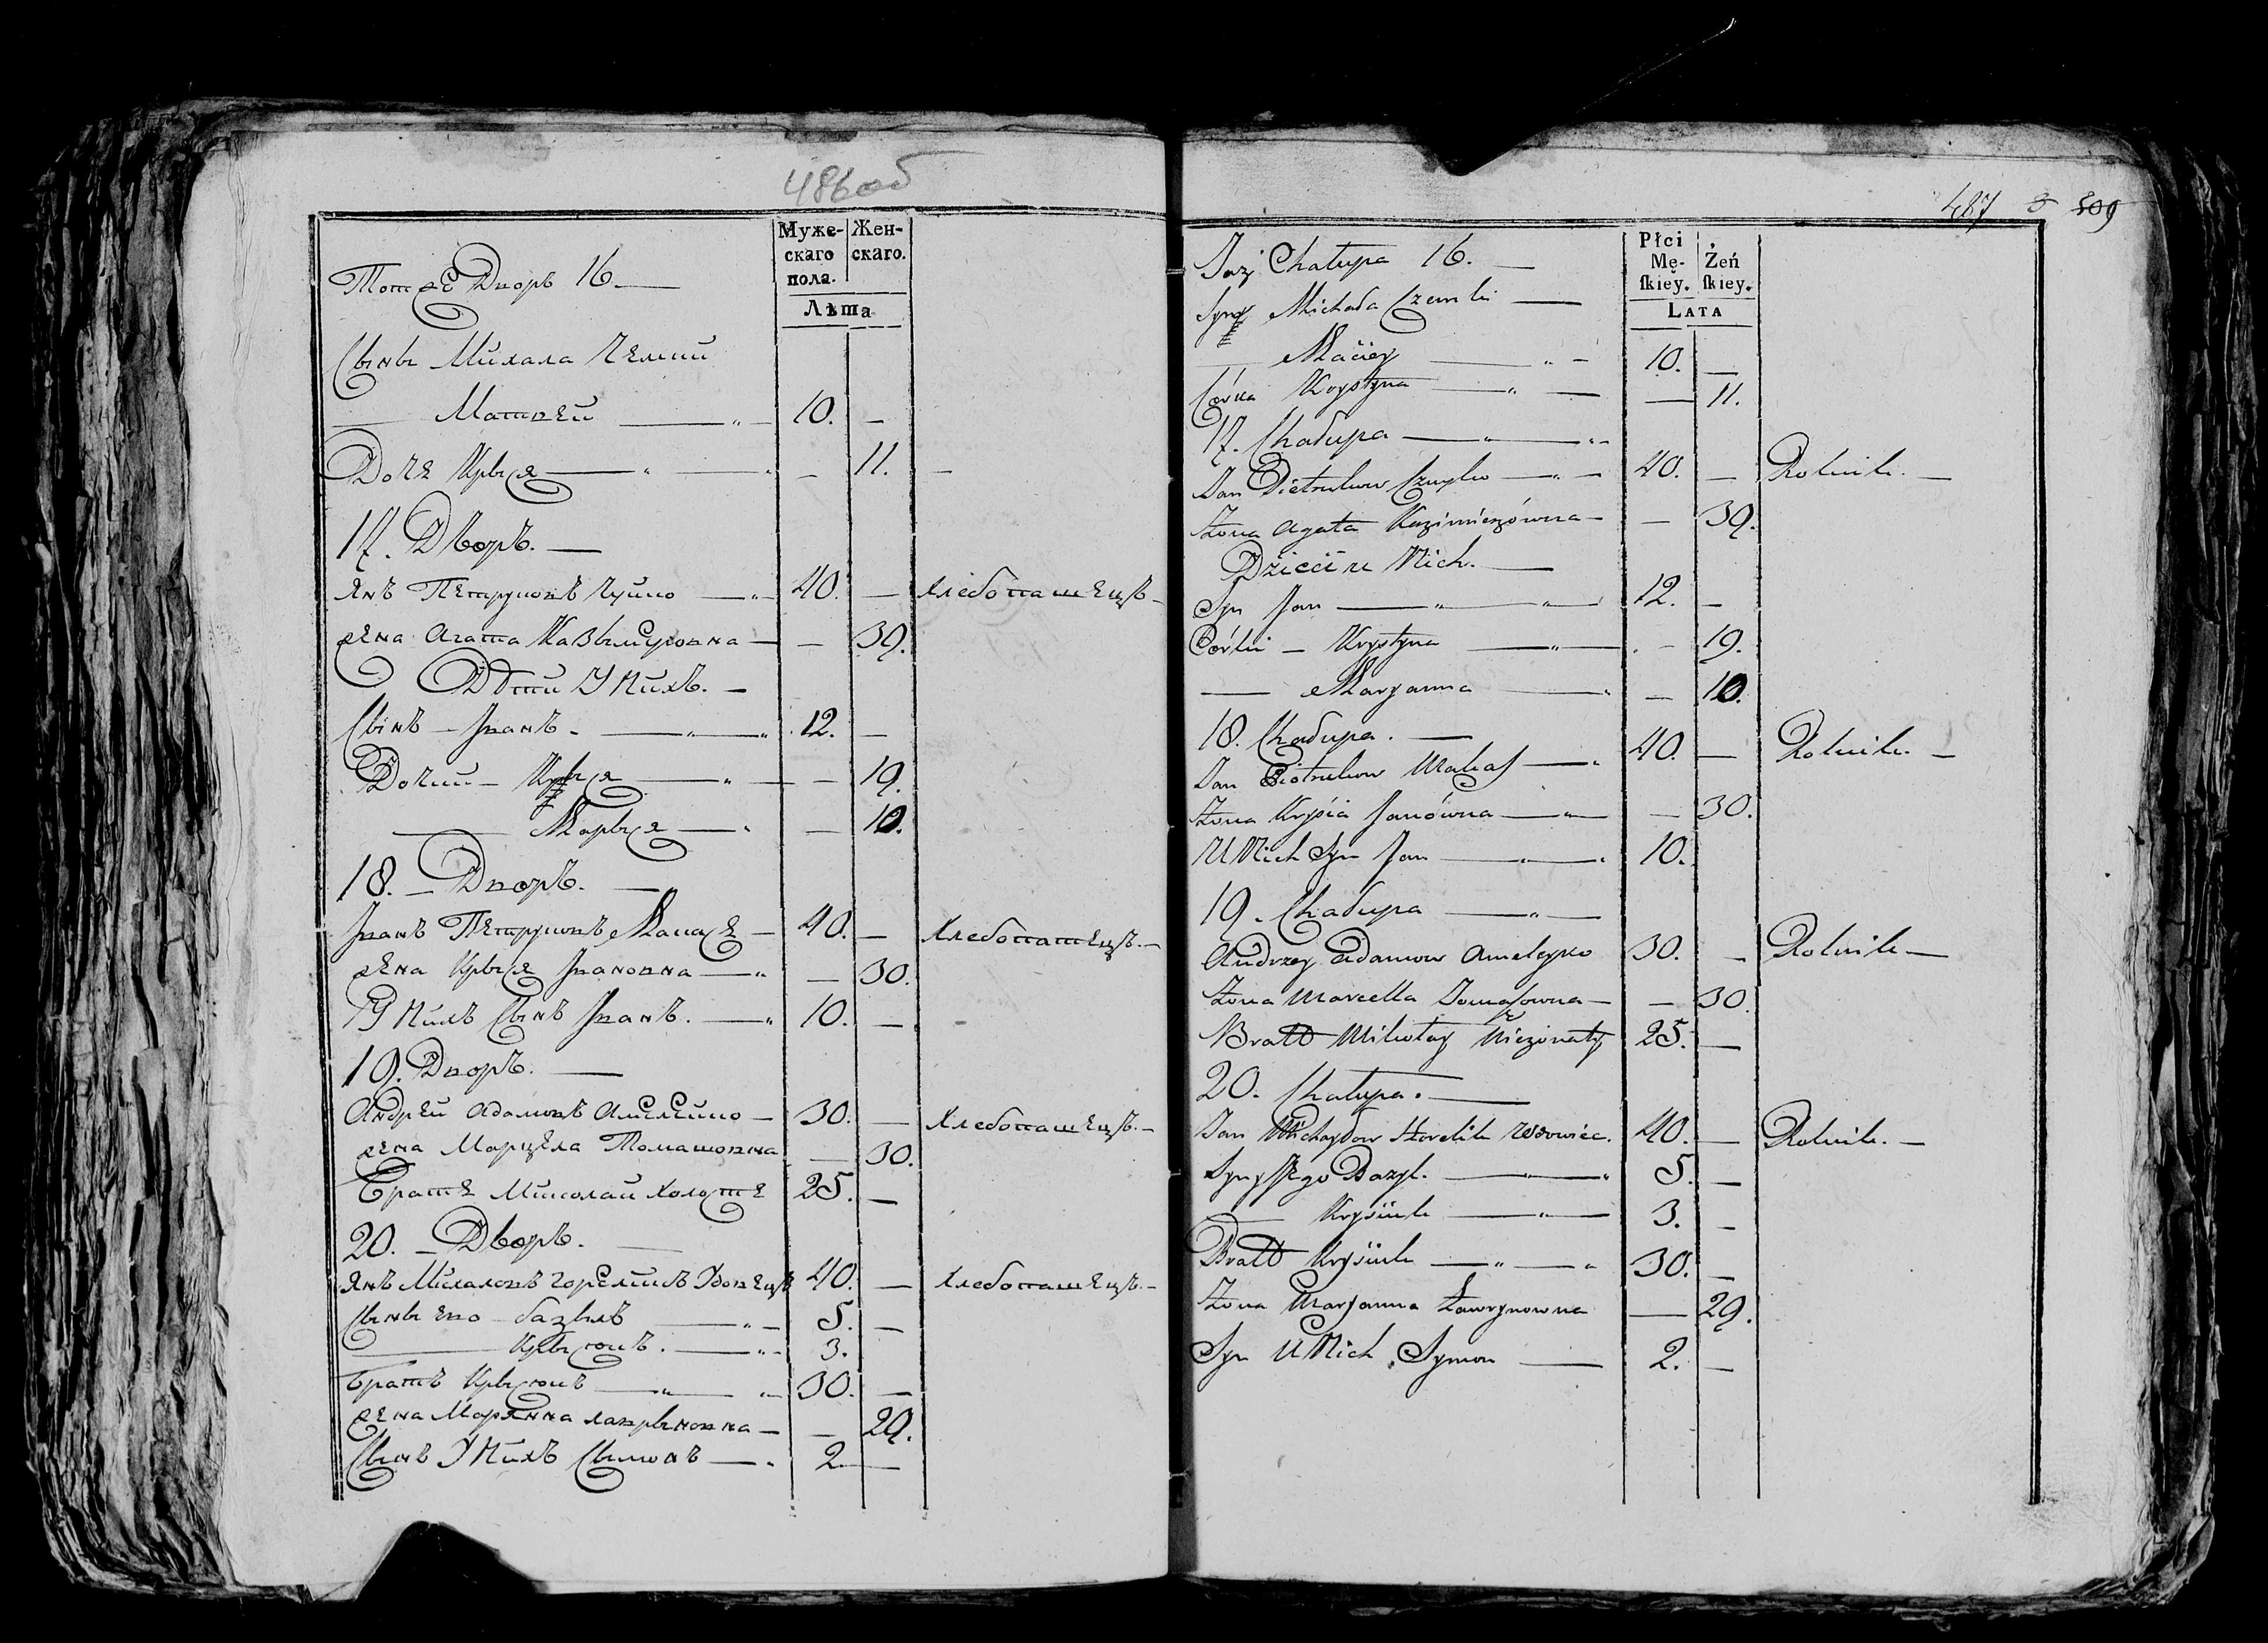 486 об
Муже-
скаго
пола.
Жен-
скаго.
Лѣта
Тотже Дворъ 16.
Сыны Михала Чемки
Матвей 10.
Доче Крыся 11.
17. Дворъ.
Янъ Петруковъ Чуйко 40. Хлебопашецъ
жена Агата Казымуровна 39.
Дѣти У Нихъ.
Сынъ Іванъ 12.
Дочки Крыся 19.
Марыся 10.
18. Дворъ.
Іванъ Петруковъ Макасе 40. Хлебопашецъ
жена Крыся Івановна 30.
У Нихъ Сынъ Іванъ. 10.
19. Дворъ.
Андрей Адамовъ 30. Хлебопашецъ
жена Марцела Томашовна 30.
Братъ Миколай холосте 25.
20. Дворъ.
Янъ Михаловъ Гореликъ Удовецъ 40. Хлебопашецъ
Сыны ево Базыль 5.
Крысюкъ. 3.
Братъ Крысюкъ 30.
жена Марянна Лаврыновна 29.
Сынъ У Нихъ Сымонъ 2
487 509
Płci
Mę-
ſkiey.
Żeń
ſkiey.
LATA
Taż Chałupa 16.
Syny Michała Czemki
Maciey 10.
Córka Krystyna 11.
17. Chałupa
Jan Pietrukow Czuyko 40. Rolnik
Żona Agata Kazimirzówna 39.
Dzieci u Nich.
Syn Jan 12.
Córki Krystyna 19.
Maryanna 10.
18. Chałupa.
Jan Pietrukow Makas 40. Rolnik
Żona Krysia Janówna 30.
U Nich Syn Jan 10.
19. Chałupa
Andrzey Adamow 30. Rolnik
Żona Marcella Tomaszowna 30
Bratt Mikołay Nieżonaty 25.
20. Chałupa.
Jan Michayłow Horelik Wdowiec. 40. Rolnik.
Syny Jego Bazyl. 5.
Krysiuk 3.
Bratt Krysiuk 30.
Żona Maryanna Ławrynowna 29.
Syn U Nich Symon 2.